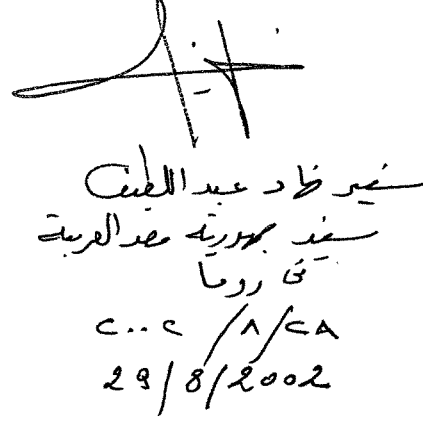 سفير نهاد عبد اللطيف
سفير جمهورية مصر العربية
فى روما
٢٨/٨/٢٠٠٢
29/8/2002